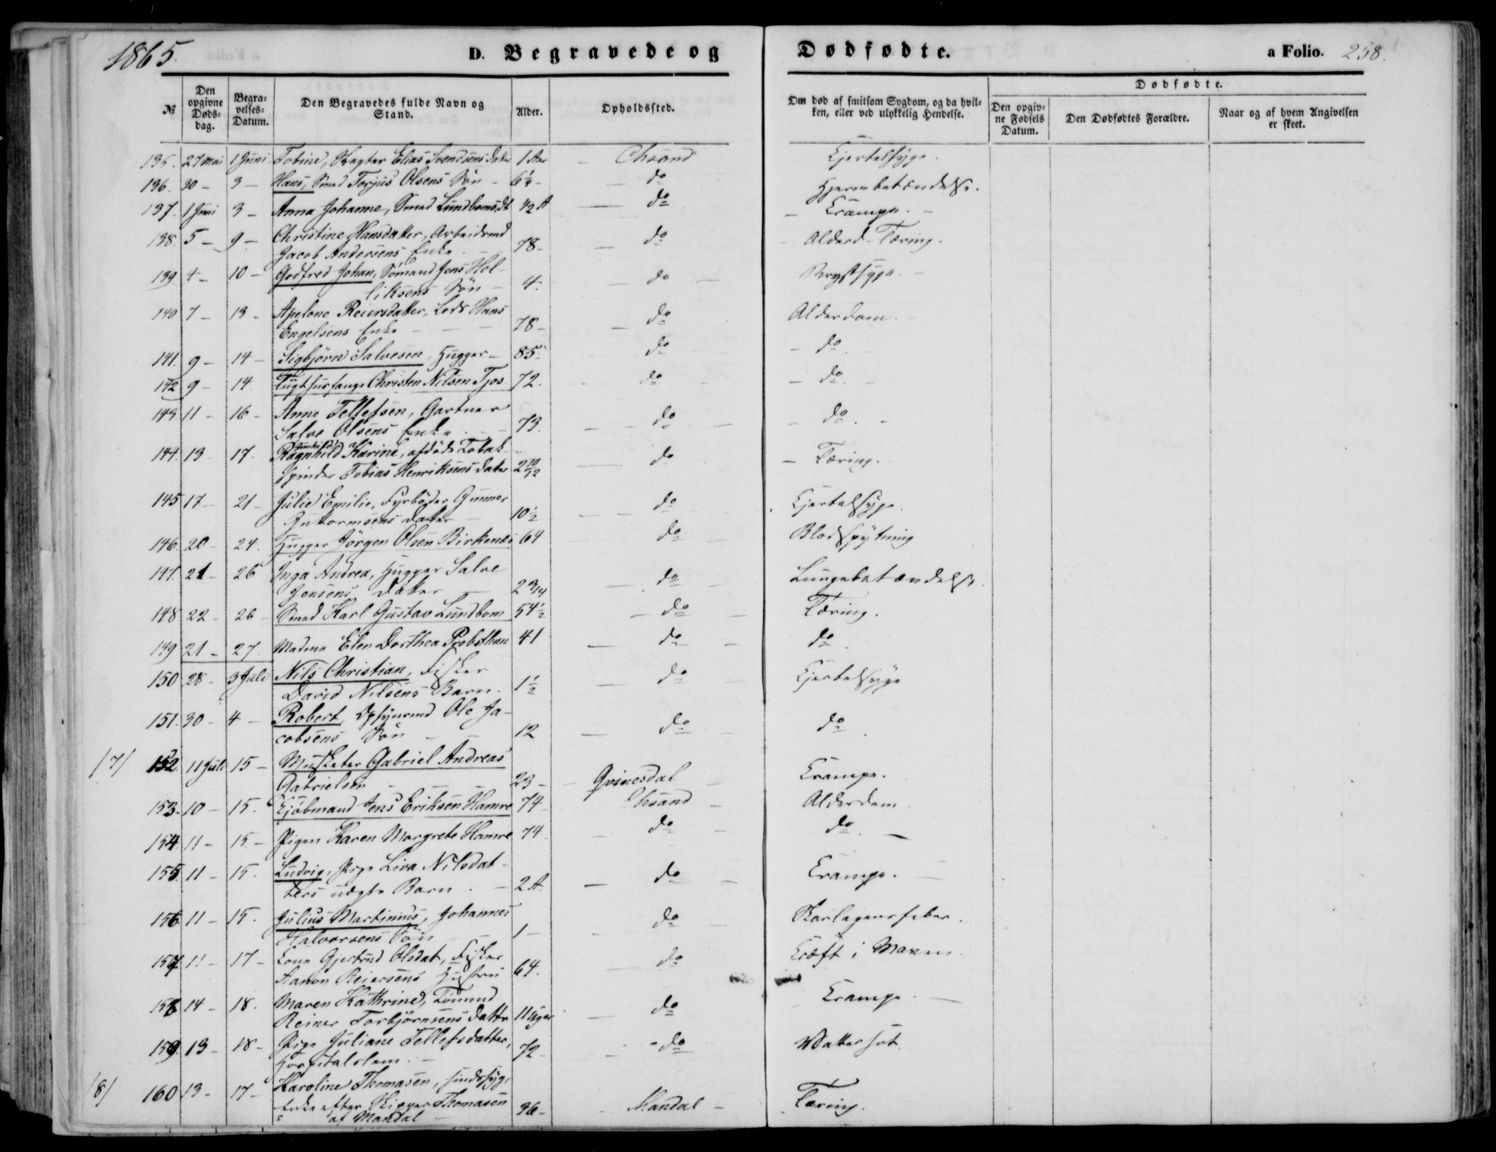 1865.
D. Begravede og Dødfødte. a Folio. 258.
№ Den opgivne Døds-dag. Begra-velses-Datum. Den Begravedes fulde Navn og Stand. Alder. Opholdssted. Om død af smitsom Sygdom, og da hvil-ken, eller ved ulykkelig Hendelse. Dødfødte.
Den opgiv-ne Fødsels Datum. Den Dødfødtes Forældre. Naar og af hvem Angivelsen er skeet.
135. 27 Mai 1 Juni Tobine, Elias Svendsens Datter 1 Aar Chsand Kjertelsyge.
136. 30 - 3 - Hans, Smed Terjus Olsens Søn - 6½ - do Hjernebetændelse.
137. 1 Juni 3 - Anna Johanne, Smed Lundboms Dt do Krampe.
138. 5 - 9 - Christine Hansdatter, Arbeidsmd
Jacob Andersens Enke 78 - do Alderd. Tæring.
139 4 - 10 - Godfred Johan, Sømand Jens Hol-
liksens Søn - 4. do Brystsyge.
140 7 - 13 - Apelone Reiersdatter, Lods Hans
Engelsens Enke 78 - do Alderdom.
141. 9 - 14 - Sigbjørn Salvesen, Hugger - 85. do do
142 9 - 14. Tugthusfange Christen Nilsen Tjos 72. do do
143 11 - 16 - Anne Tellefsen, Gartner
Salve Olsens Enke 73. do do
144. 13 17. Ragnhild Karine, afdøde Tobak
spinder Tobias Henriksens Datter 2 10/12 do Tæring.
145 17 - 21 - Julie Emilie, Fyrbøder Gunner
Guttormsens Datter 10½ do Kjertelsyge.
146. 20 - 24. Hugger Jørgen Olsen Birkenæs 64 do Blodspytning
147. 21 - 26 Inga Andrea, Hugger Salve
Jensens Datter 2 do Lungebetændelse.
148 22 - 26 - Smed Karl Gustav Lundbom 54½ do Tæring.
149 21 - 27. Madme Elen Dorthea Probsthan 41 do do
150 28 - 3 Juli Nils Christian, Fisker
David Nilsens Barn. 1½ do Kjertelsyge
151. 30 - 4 - Robert, Opsynsmd Ole Ja-
cobsens Søn 12 do do
/7/ 152 11 Juli 15 - Musketer Gabriel Andreas
Gabrielsen 23 - Qvinesdal Krampe.
153. 10 - 15. Kjøbmand Jens Eriksen Hamre 74 - Chsand Alderdom.
154 11 - 15 - Pigen Karen Margrete Hamre 74 - do do
155 11 - 15. Ludvig, Pige Liva Nilsdat-
ters uægte Barn. - 2 A. do Krampe.
156 11 - 15. Julius Martinius, Johannes
Halvorsens Søn 1 - do Skarlagensfeber.
157 11 - 17 - Lena Gjertrud Olsdat, Fisker
Aanon Reiersens Hustru 64. do Kræft i Maven.
158 14 - 18. Maren Kathrine, Tømmd
Reiner Torbjørnsens Datter 11 Uger do Krampe.
159. 13 - 18 - Pige Juliane Tellefsdatter,
Hospitalslem. 72 - do Vattersot.
/8/ 160 13 - 17 - Karoline Thomasen, sindssyg
Enke efter Skipper Thomasen
af Mandal 36 - Mandal - Tæring.